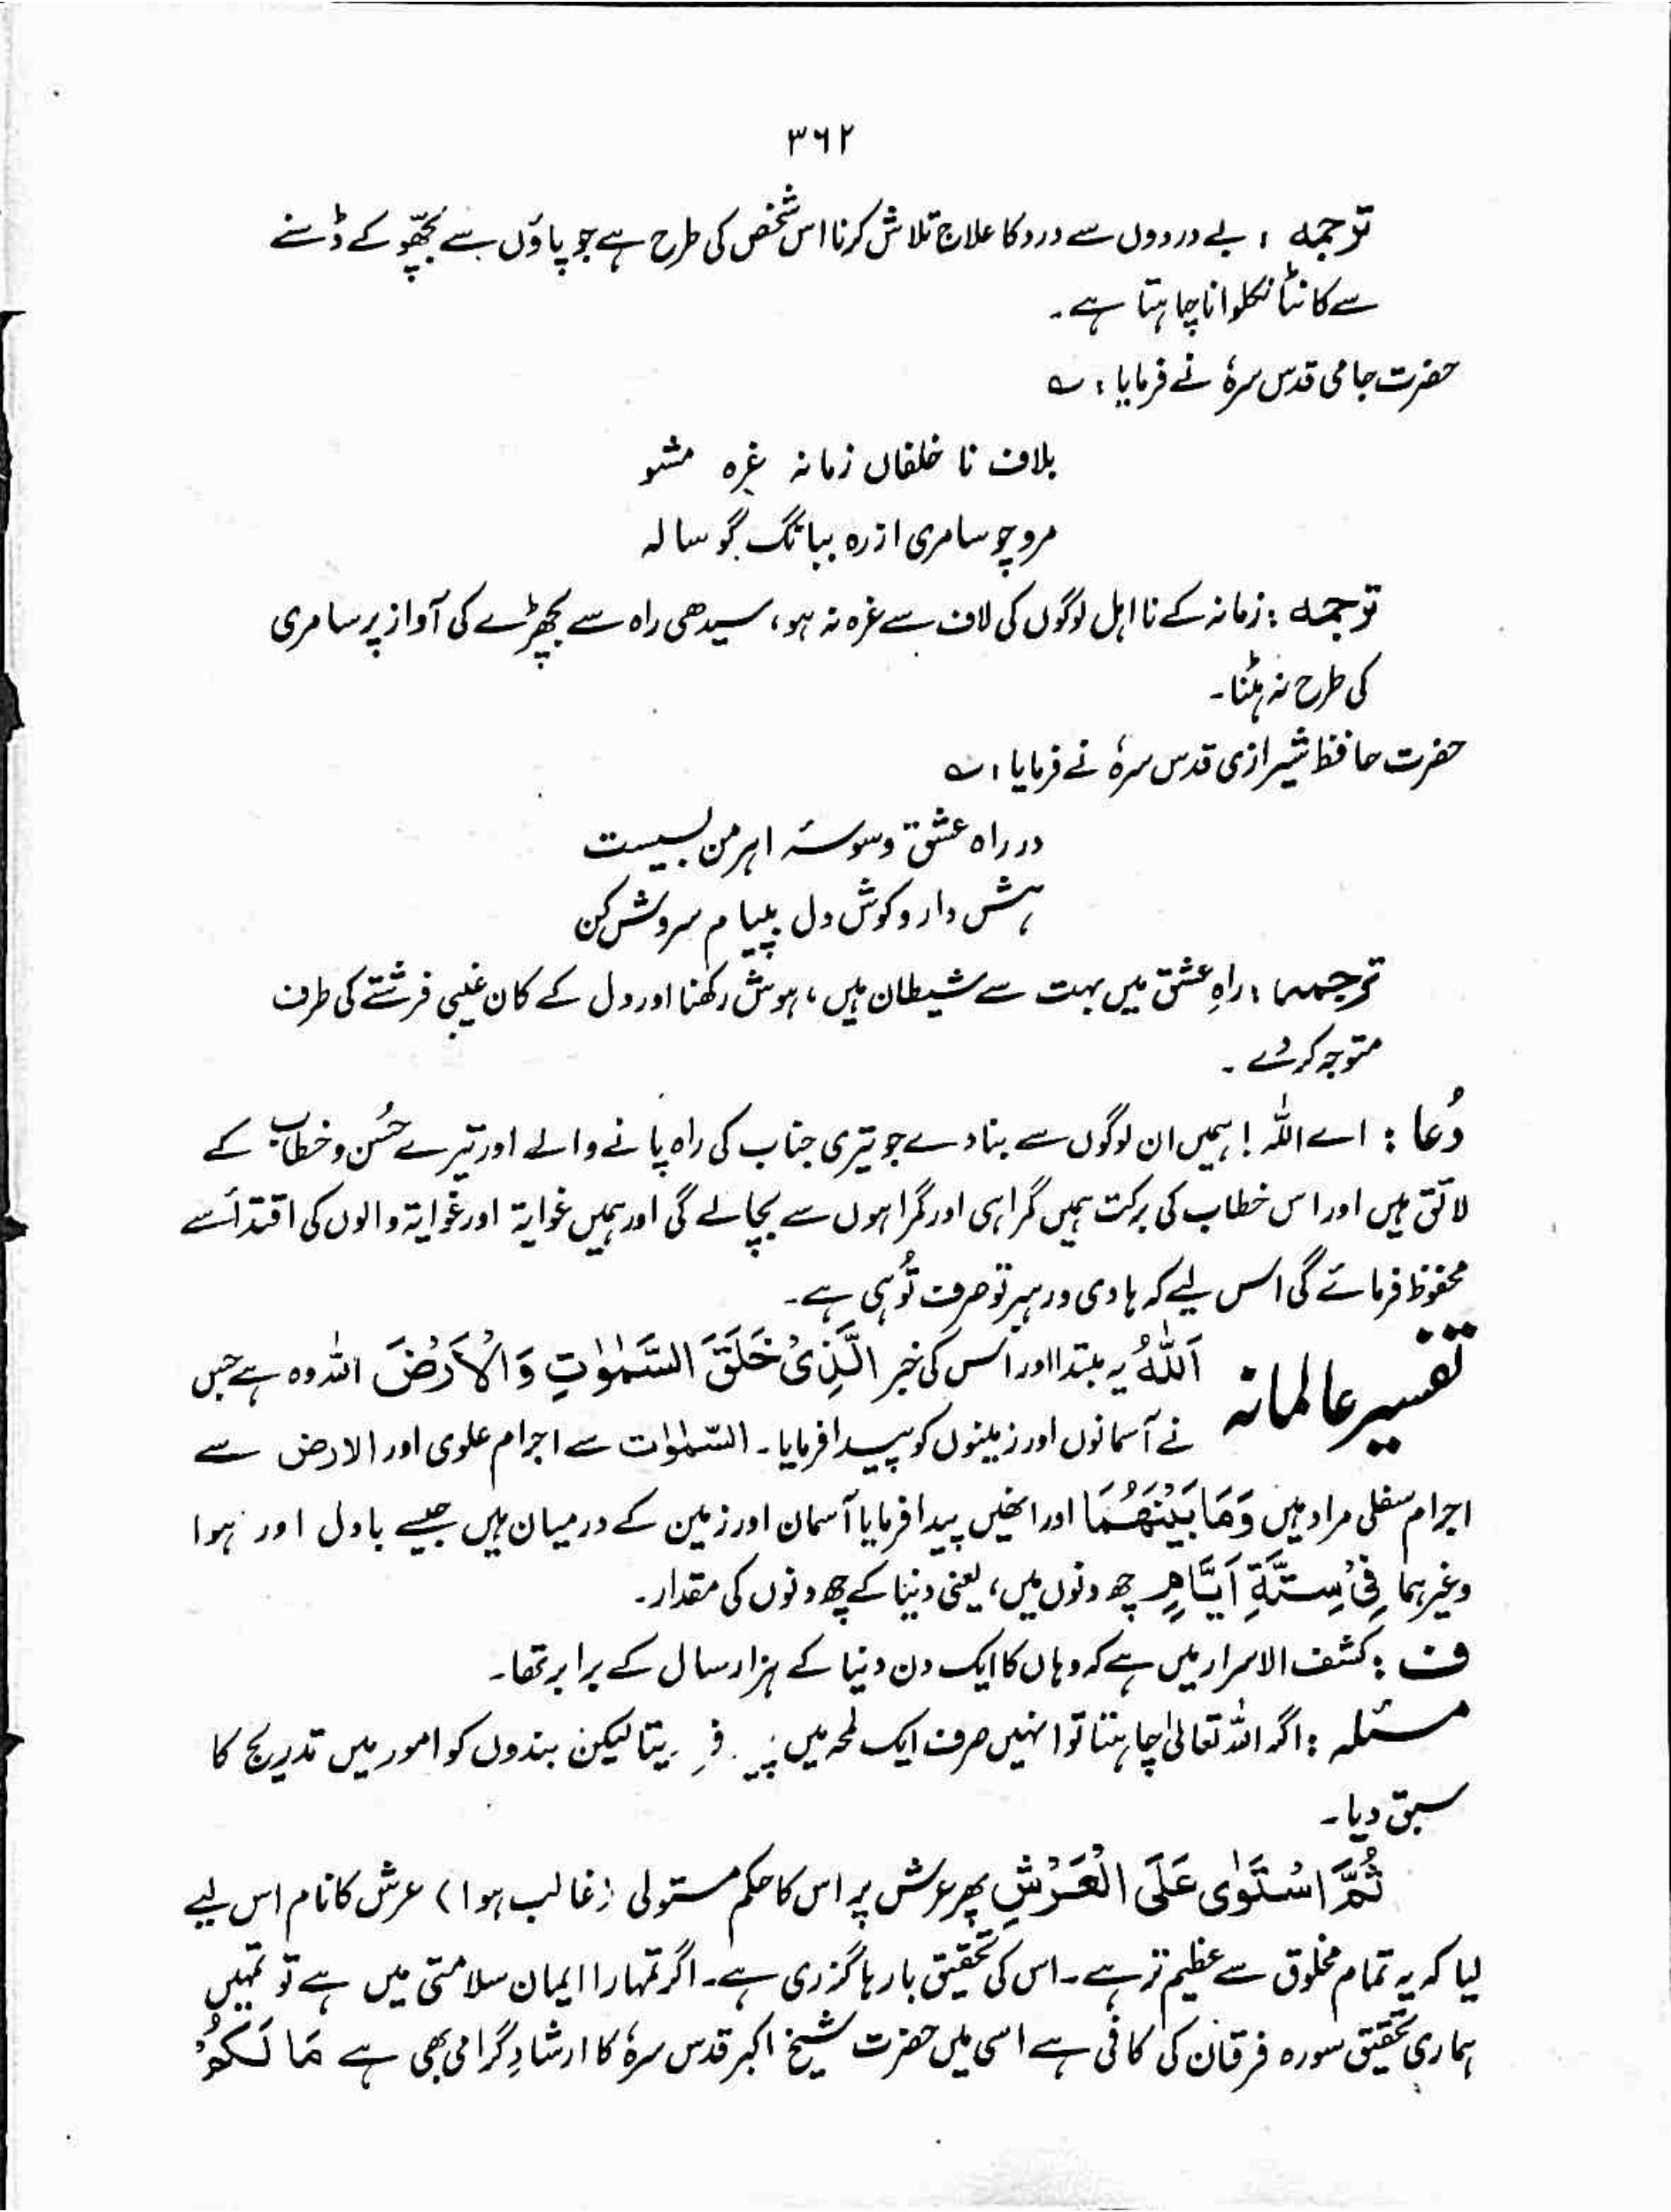 ۳۶۲
ترجمہ : بے دردوں سے درد کا علاج تلاش کرنا اس شخص کی طرح ہے جو پاؤں سے بچھّو کے ڈسنے
سے کانٹا نکلوانا چاہتا ہے۔
حضرت جامی قدس سرہٗ نے فرمایا : ؎
بلاف نا خلفاں زمانہ غرہ مشو
مرو چو سامری از رہ ببانگ گوسالہ
ترجمہ : زمانہ کے نا اہل لوگوں کی لاف سے غرہ نہ ہو، سیدھی راہ سے بچھڑے کی آواز پر سامری
کی طرح نہ ہٹنا۔
حضرت حافظ شیرازی قدس سرہٗ نے فرمایا : ؎
در راہ عشق وسوسۂ اہرمن بسیست
ہش دار و گوش دل بپیام سروش کن
ترجمہ : راہِ عشق میں بہت سے شیطان ہیں، ہوش رکھنا اور دل کے کان غیبی فرشتے کی طرف
متوجہ کر دے ۔
دُعا : اے اللہ ! ہمیں ان لوگوں سے بنا دے جو تیری جناب کی راہ پانے والے اور تیرے حُسن و خطاب کے
لائق ہیں اور اس خطاب کی برکت ہمیں گمراہی اور گمراہوں سے بچالے گی اور ہمیں غوایۃ اور غوایۃ والوں کی اقتدأ سے
محفوظ فرمائے گی اس لیے کہ ہادی و رہبر تو صرف تُو ہی ہے۔
تفسیر عالمانہ اَللّٰہُ یہ مبتدا اور اس کی خبر الَّذِیْ خَلَقَ السَّمٰوٰتِ وَالْاَرْضَ اللہ وہ ہے جس
نے آسمانوں اور زمینوں کو پیدا فرمایا۔ السّمٰوٰت سے اجرام علوی اور الارض سے
اجرام سفلی مراد ہیں وَمَا بَیْنَهُمَا اور انھیں پیدا فرمایا آسمان اور زمین کے درمیان ہیں جیسے بادل اور ہوا
وغیرہما فِیْ سِتَّةِ اَیَّامٍ چھ دنوں میں، یعنی دنیا کے چھ دنوں کی مقدار۔
ف : کشف الاسرار میں ہے کہ وہاں کا ایک دن دنیا کے ہزار سال کے برابر تھا۔
مسئلہ : اگر اللہ تعالیٰ چاہتا تو انہیں صرف ایک لمحہ میں لیکن بندوں کو امور میں تدریج کا
سبق دیا۔
ثُمَّ اسْتَوٰی عَلَی الْعَرْشِ پھر عرش پر اس کا حکم مستولی (غالب ہوا) عرش کا نام اس لیے
لیا کہ یہ تمام مخلوق سے عظیم تر ہے۔ اس کی تحقیق بارہا گزری ہے۔ اگر تمہارا ایمان سلامتی میں ہے تو تمہیں
ہماری تحقیق سورہ فرقان کی کافی ہے اسی میں حضرت شیخ اکبر قدس سرہٗ کا ارشادِ گرامی بھی ہے مَا لَکُمْ